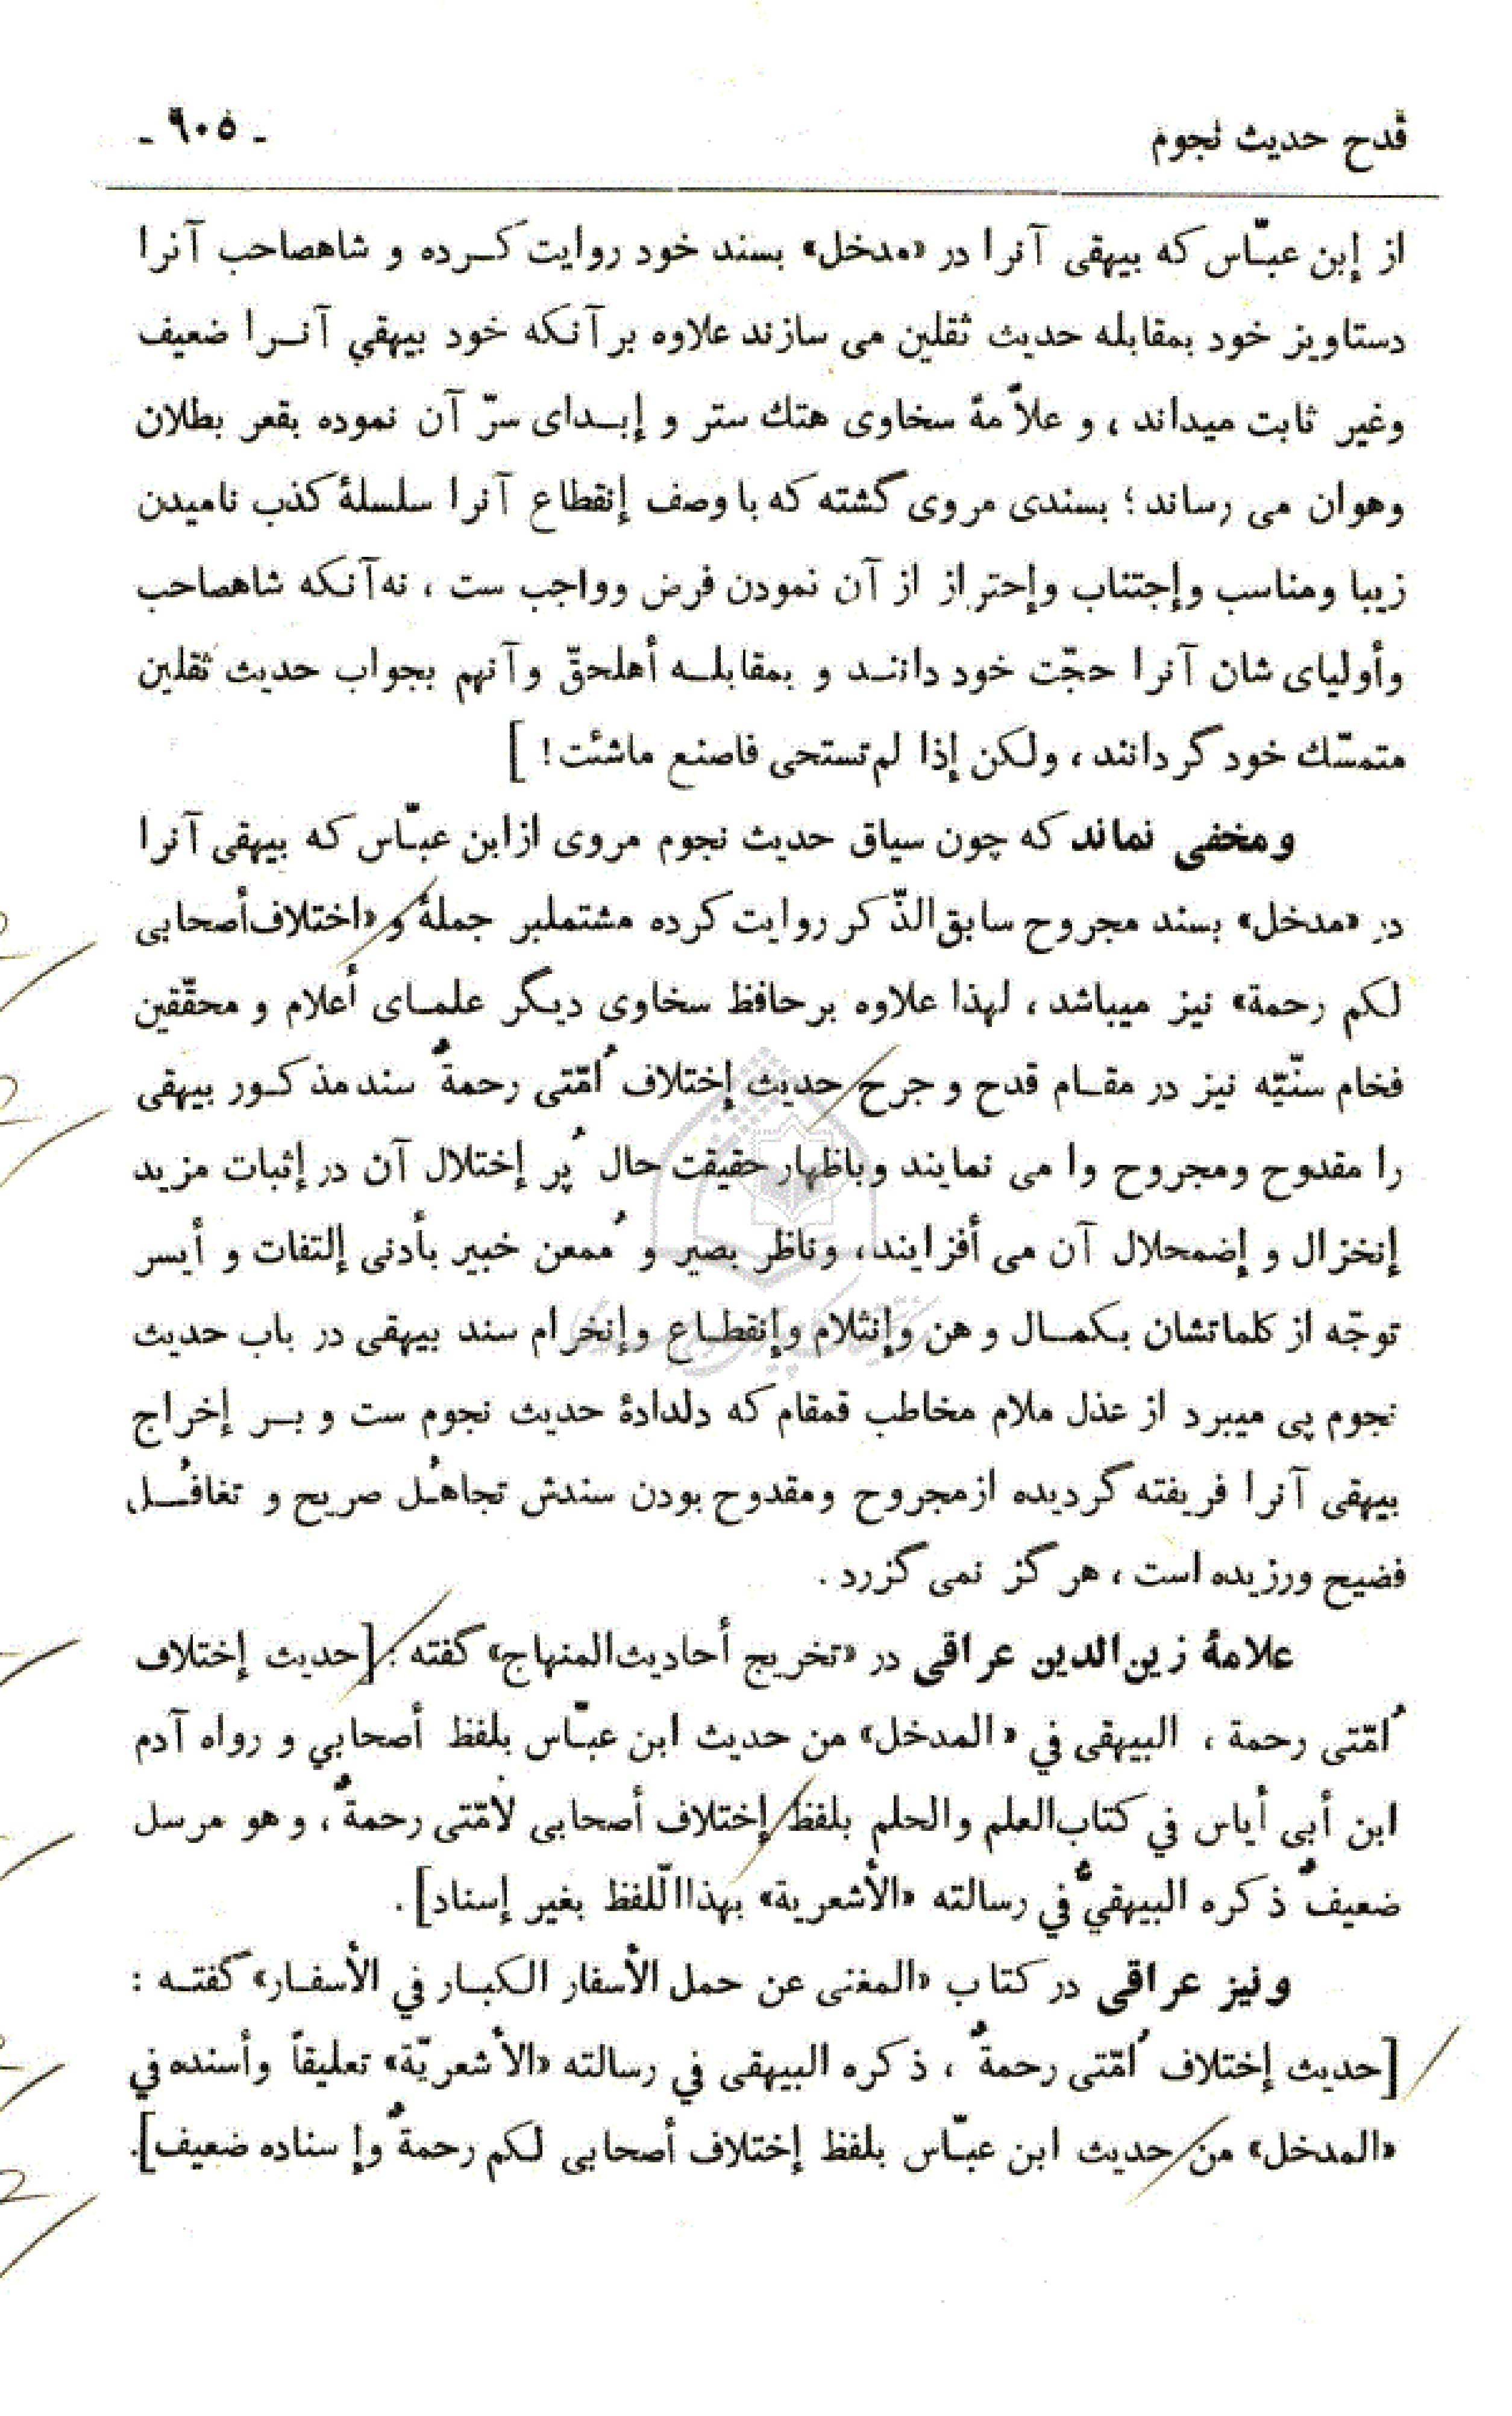 قدح حدیث نجوم
- ٩٠٥ -
از إبن عبّاس که بیهقی آنرا در «مدخل» بسند خود روایت کرده و شاهصاحب آنرا
دستاویز خود بمقابله حدیث ثقلین می سازند علاوه بر آنکه خود بیهقي آنرا ضعیف
وغیر ثابت میداند ، و علاّمهٔ سخاوی هتك ستر و إبدای سرّ آن نموده بقعر بطلان
وهوان می رساند ؛ بسندی مروی گشته که با وصف إنقطاع آنرا سلسلهٔ کذب نامیدن
زیبا ومناسب وإجتناب وإحتراز از آن نمودن فرض وواجب ست ، نه آنکه شاهصاحب
وأولیای شان آنرا حجّت خود دانند و بمقابله أهلحقّ وآنهم بجواب حدیث ثقلین
متمسّك خود گردانند ، ولکن إذا لم تستحی فاصنع ماشئت ! ]
ومخفی نماند که چون سیاق حدیث نجوم مروی ازابن عبّاس که بیهقی آنرا
در «مدخل» بسند مجروح سابق الذّکر روایت کرده مشتملبر جملهٔ و «اختلاف أصحابی
لکم رحمة» نیز میباشد ، لهذا علاوه بر حافظ سخاوی دیگر علمای أعلام و محقّقین
فخام سنّیّه نیز در مقام قدح و جرح حدیث إختلاف اُمّتی رحمةٌ سند مذکور بیهقی
را مقدوح ومجروح وا می نمایند وباظهار حقیقت حال پُر إختلال آن در إثبات مزید
إنخزال و إضمحلال آن می أفزایند ، وناظر بصیر و مُمعن خبیر بأدنی إلتفات و أیسر
توجّه از کلماتشان بکمال وهن وإنثلام وإنقطاع وإنخرام سند بیهقی در باب حدیث
نجوم پی میبرد از عذل ملام مخاطب قمقام که دلدادهٔ حدیث نجوم ست و بر إخراج
بیهقی آنرا فریفته گردیده ازمجروح ومقدوح بودن سندش تجاهُل صریح و تغافُل
فضیح ورزیده است ، هرگز نمی گزرد .
علامهٔ زین الدین عراقی در «تخریج أحادیث المنهاج» گفته : [حدیث إختلاف
اُمّتی رحمة ، البیهقی في «المدخل» من حدیث ابن عبّاس بلفظ أصحابي و رواه آدم
ابن أبی أیاس في کتاب العلم والحلم بلفظ إختلاف أصحابی لأمّتی رحمةٌ ، وهو مرسل
ضعیفٌ ذکره البیهقيُّ في رسالته «الأشعریة» بهذا الّلفظ بغیر إسناد] .
ونیز عراقی در کتاب «المغنی عن حمل الأسفار الکبار في الأسفار» گفته :
[حدیث إختلاف اُمّتی رحمةٌ ، ذکره البیهقی في رسالته «الأشعریّة» تعلیقاً وأسنده في
«المدخل» من حدیث ابن عبّاس بلفظ إختلاف أصحابی لکم رحمةٌ وإسناده ضعیف].